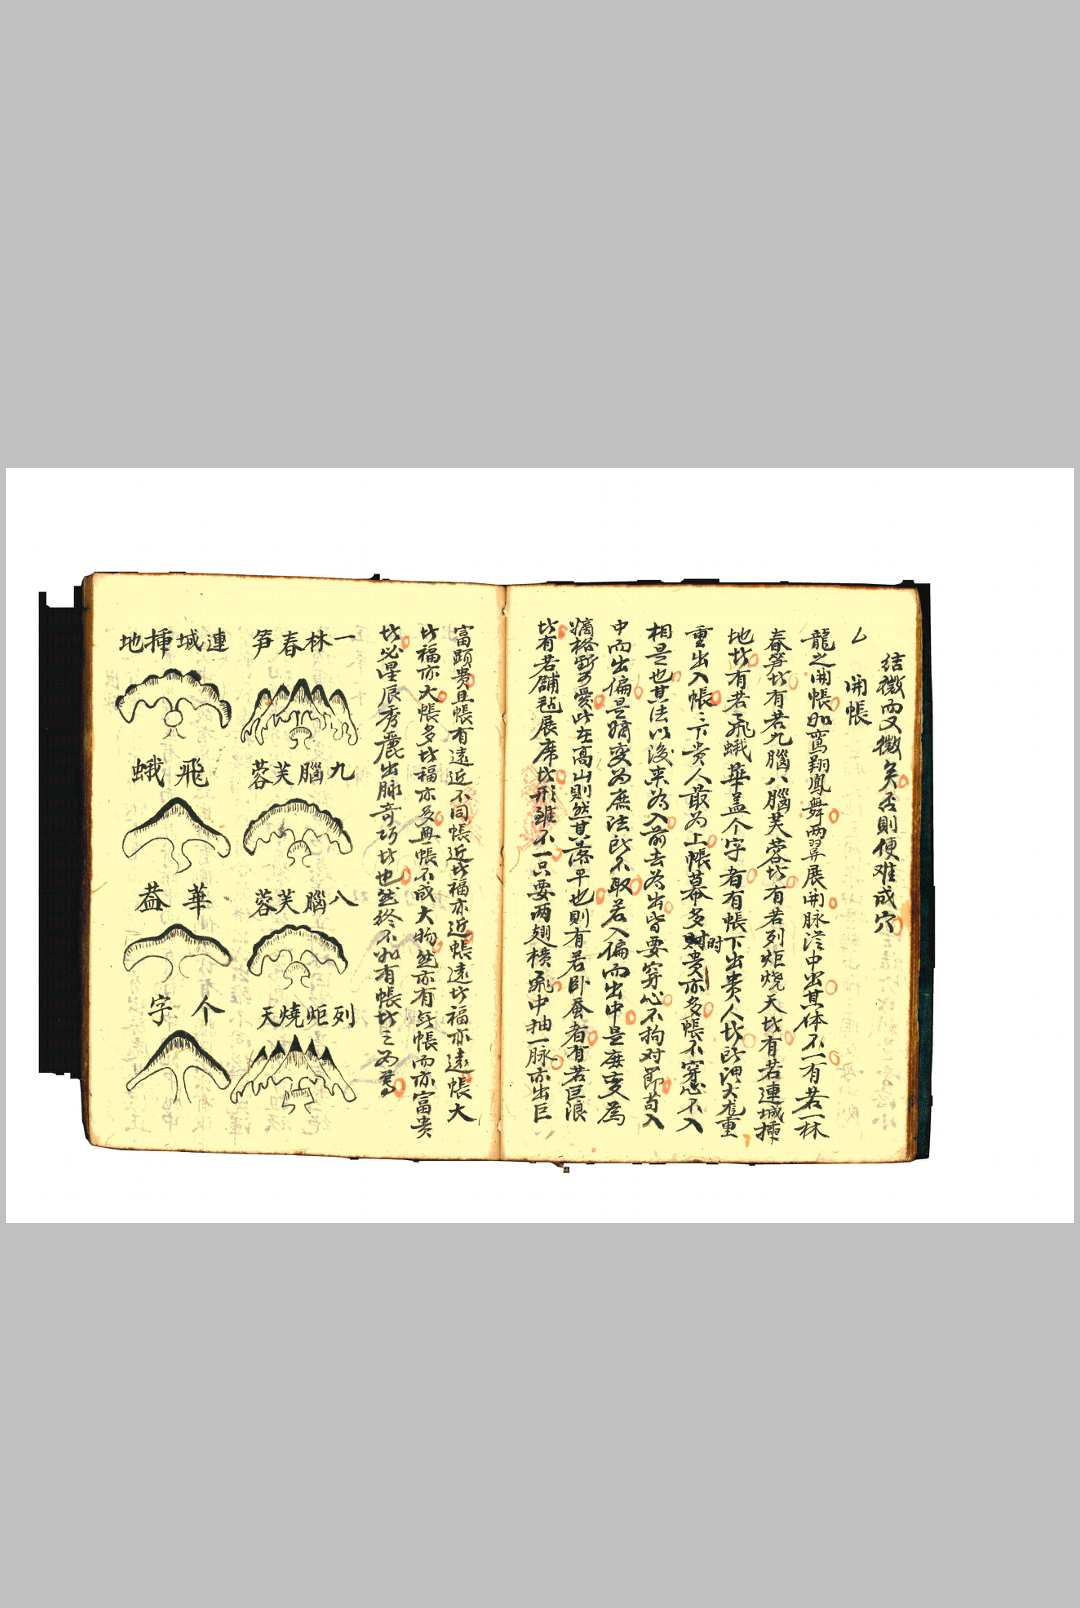 結徵而又徵矣否則便难成穴
開帳
龍之開帳如鸞翔鳳舞兩翼展開脉從中出其体不一有若一林
春笋者有若九腦八腦芙蓉者有若列炬燒天者有若連城揷
地者有若飛蛾華盖个字者有帳下出貴人者所謂大龙重
重出入帳一下贵人最为上帳幕多时贵亦多帳不穿心不入
相是也其法以後来为入前去为出皆要穿心不拘对節苟入
中而出偏是嫡变为庶法所不取若入偏而出中是庶变爲
嫡格 可爱此在高山則然其落平也則有若卧蚕者有若巨浪
者有若舖毡展席者形雖不一只要两翅横 中抽一脉亦出巨
富顕貴且帳有遠近不同帳近者福亦近帳遠者福亦遠帳大
者福亦大帳多者福亦 無帳不成大物然亦有無帳而亦富贵
者必星辰秀麗出脉奇巧者也然終不如有帳者之为
一林春笋
連城揷地
九腦芙蓉
飛蛾
八腦芙蓉
華盖
列炬燒天
个字